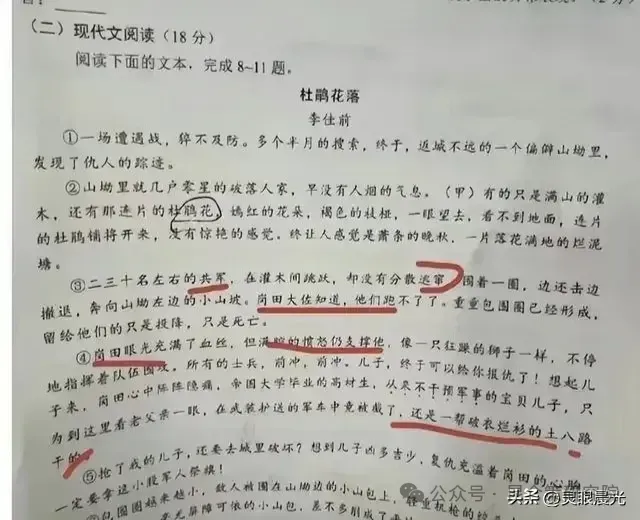 (二)现代文阅读(18分)
阅读下面的文本，完成8~11题。
杜鹃花落
李仕前
①一场遭遇战，猝不及防。多个半月的搜索，终于，返城不远的一个偏僻山坳里，
发现了仇人的踪迹。
②山坳里就几户零星的破落人家，早没有人烟的气息。(甲)有的只是满山的灌
木，还有那连片的杜鹃花，嫣红的花朵，褐色的枝桠，一眼望去，看不到地面，连片
的杜鹃铺将开来，没有惊艳的感觉。终让人感觉是萧条的晚秋，一片落花满地的烂泥
塘。
③二三十名左右的共军，在灌木间跳跃，却没有分散逃窜，围着一圈，边还击边
撤退，奔向山坳左边的小山坡。岗田大佐知道，他们跑不了了。重重包围圈已经形成，
留给他们的只是投降，只是死亡。
④岗田眼光充满了血丝，但满腔的愤怒仍支撑他，像一只狂躁的狮子一样，不停
地指挥着队伍围攻。所有的士兵，前冲，前冲。儿子，终于可以给你报仇了！想起儿
子来，岗田心中阵阵隐痛，帝国大学毕业的高材生，从来不干预军事的宝贝儿子，只
为到这里看老父亲一眼，在武装护送的军车中竟被截了，还是一帮破衣烂衫的土八路
干的。
⑤抢了我的儿子，还要去城里破坏？想到儿子凶多吉少，复仇充溢着岗田的心胸
一定要拿这小股军人祭旗！
包围圈越来越小，敌人被困在山坳边的小山包上，轻重机枪的
无屏障可依的小山包，差不多削成了
公众号
头条@昊眼晨光